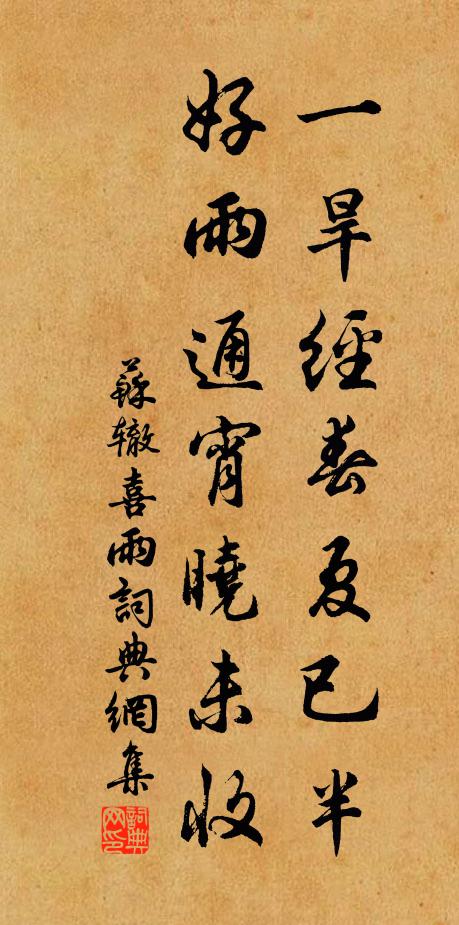 一旱經春夏已半
好雨通宵曉未收
蘇轍喜雨詞典網集
詞典网印